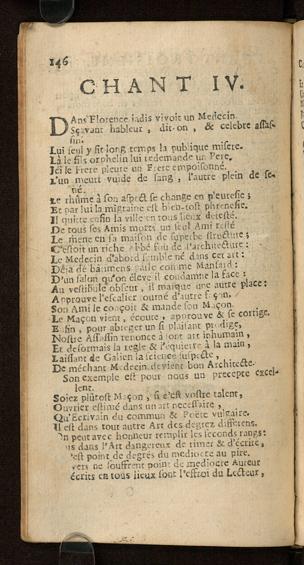 146
CHANT IV.
DAns Florence jadis vivoit un Medecin
Sçavant hableur, dit-on, & celebre assas-
sin.
Lui seul y fit long temps la publique misere.
Là le fils orphelin lui redemande un Pere,
Ici le Frere pleure un Frere empoisonné.
L'un meurt vuide de sang, l'autre plein de se-
né.
Le rhûme à son aspect se change en pleuresie;
Et par lui la migraine est bien-tost phrenesie.
Il quitte enfin la ville en tous lieux detesté.
De tous ses Amis morts un seul Ami resté
Le mene en sa maison de superbe structure;
C'estoit un riche Abbé fou de l'architecture:
Le Medecin d'abord semble né dans cet art:
Déja de bâtimens parle comme Mansard:
D'un salon qu'on éleve il condamne la face:
Au vestibule obscur, il marque une autre place:
Approuve l'escalier tourné d'autre façon.
Son Ami le conçoit & mande son Maçon.
Le Maçon vient, écoute, approuve & se corrige.
Enfin, pour abreger un si plaisant prodige,
Nostre Assassin renonce à son art inhumain,
Et desormais la regle & l'equierre à la main,
Laissant de Galien la science suspecte,
De méchant Medecin devient bon Architecte.
Son exemple est pour nous un precepte excel-
lent.
Soiez plûtost Maçon, si c'est vostre talent,
Ouvrier estimé dans un art necessaire,
Qu'Ecrivain du commun & Poëte vulgaire.
Il est dans tout autre Art des degrez differens.
On peut avec honneur remplir les seconds rangs:
is dans l'Art dangereux de rimer & d'écrire,
'est point de degrés du mediocre au pire.
vers ne souffrent point de mediocre Auteur
écrits en tous lieux sont l'effroi du Lecteur,